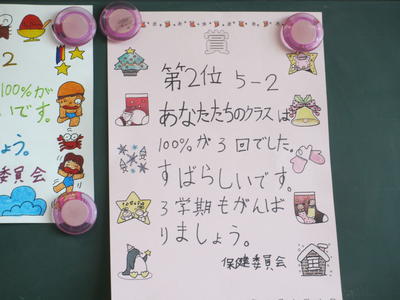 賞
第2位 5-2
あなたたちのクラスは
100%が3回でした。
すばらしいです。
3学期もがんば
りましょう。
保健委員会
2
100%が
いです。
ょう。
委員会